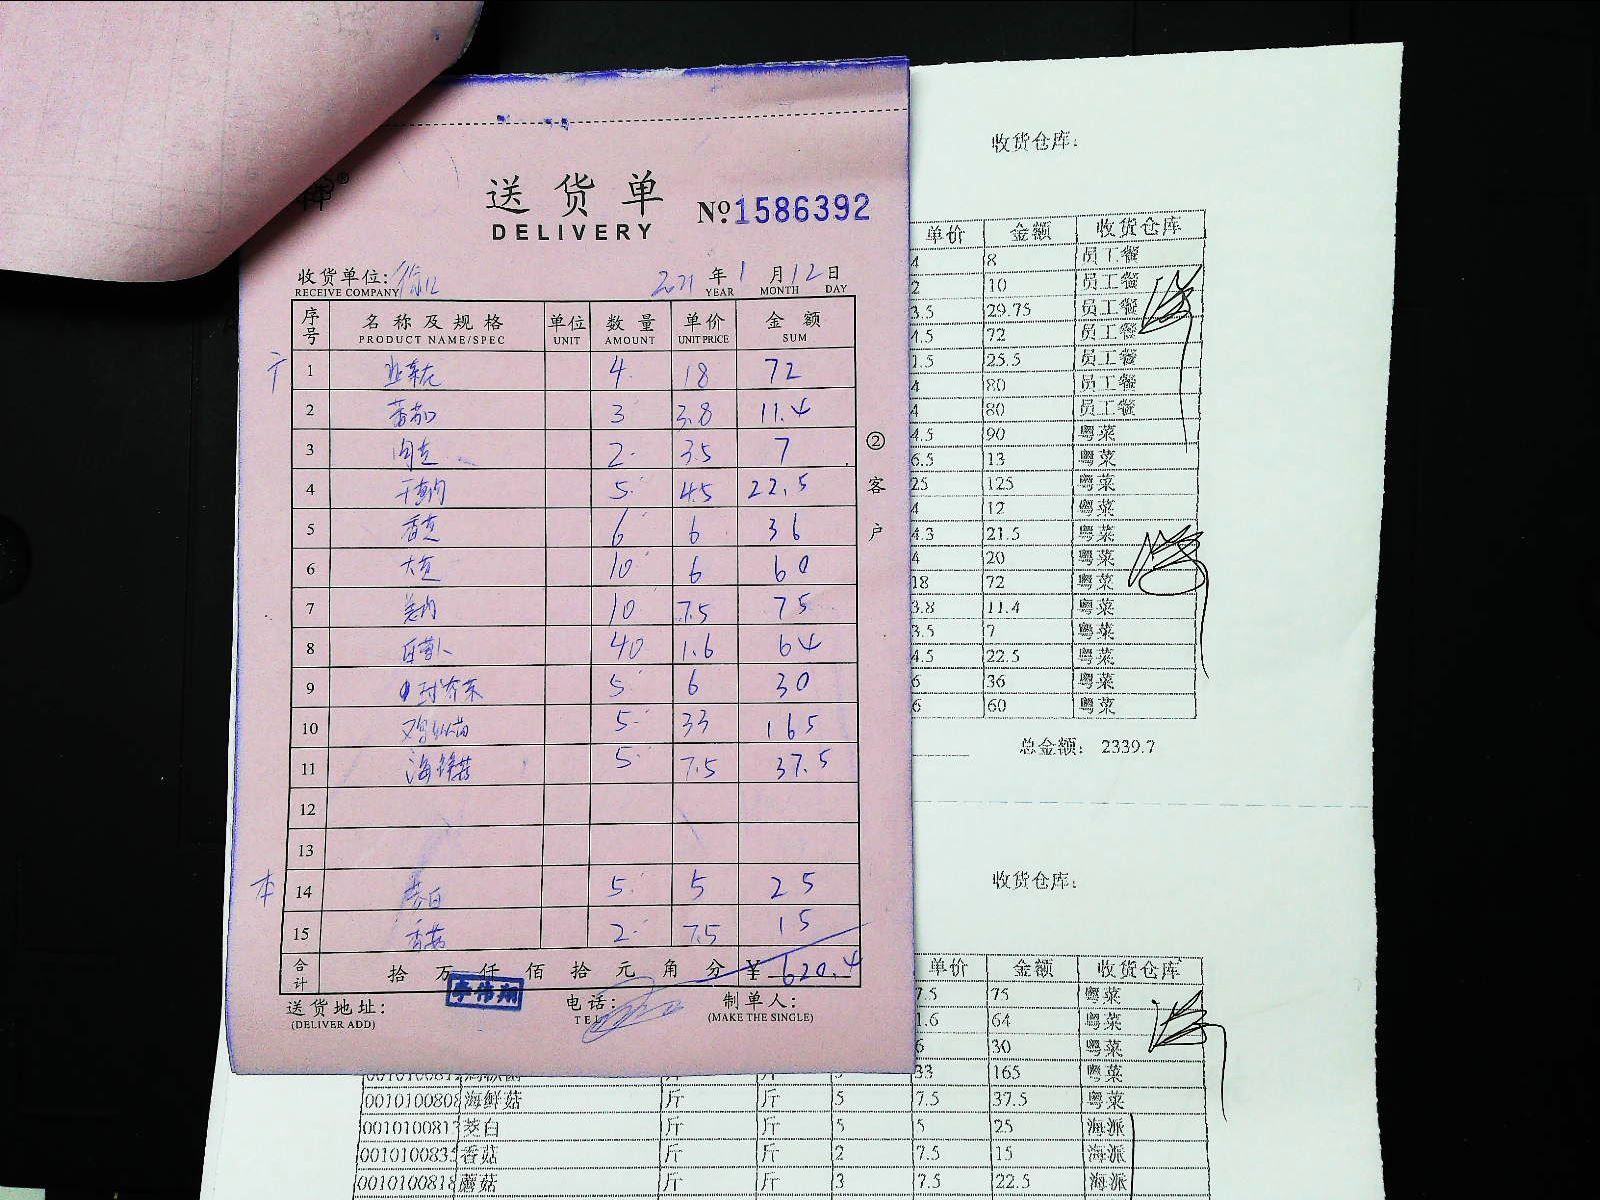 送货单
DELIVERY
№1586392
收货单位: 徐汇 2021 年 1 月 12 日
RECEIVE COMPANY YEAR MONTH DAY
序号 名称及规格 单位 数量 单价 金额
PRODUCT NAME/SPEC UNIT AMOUNT UNIT PRICE SUM
1 韭菜花 4 18 72
2 番茄 3 3.8 11.4
3 3.5 7
4 5 4.5 22.5
5 6 6 36
6 10 6 60
7 10 7.5 75
8 白萝卜 40 1.6 64
9 5 6 30
10 鸡纵菌 5 33 165
11 海鲜菇 5 7.5 37.5
12
13
本 14 茭白 5 5 25
15 香菇 2 7.5 15
合计 拾 万 仟 佰 拾 元 角 分 ¥ 620.4
李伟翔
送货地址: 电话: 制单人:
(DELIVER ADD) TEL (MAKE THE SINGLE)
② 客户
收货仓库:
单价 金额 收货仓库
4 8 员工餐
2 10 员工餐
3.5 29.75 员工餐
4.5 72 员工餐
1.5 25.5 员工餐
4 80 员工餐
4 80 员工餐
4.5 90 粤菜
6.5 13 粤菜
25 125 粤菜
4 12 粤菜
4.3 21.5 粤菜
4 20 粤菜
18 72 粤菜
3.8 11.4 粤菜
3.5 7 粤菜
4.5 22.5 粤菜
6 36 粤菜
6 60 粤菜
总金额: 2339.7
收货仓库:
单价 金额 收货仓库
7.5 75 粤菜
1.6 64 粤菜
6 30 粤菜
33 165 粤菜
0010100808 海鲜菇 斤 斤 5 7.5 37.5 粤菜
001010081 茭白 斤 斤 5 5 25 海派
001010083 香菇 斤 斤 2 7.5 15 海派
0010100818 蘑菇 斤 斤 3 7.5 22.5 海派